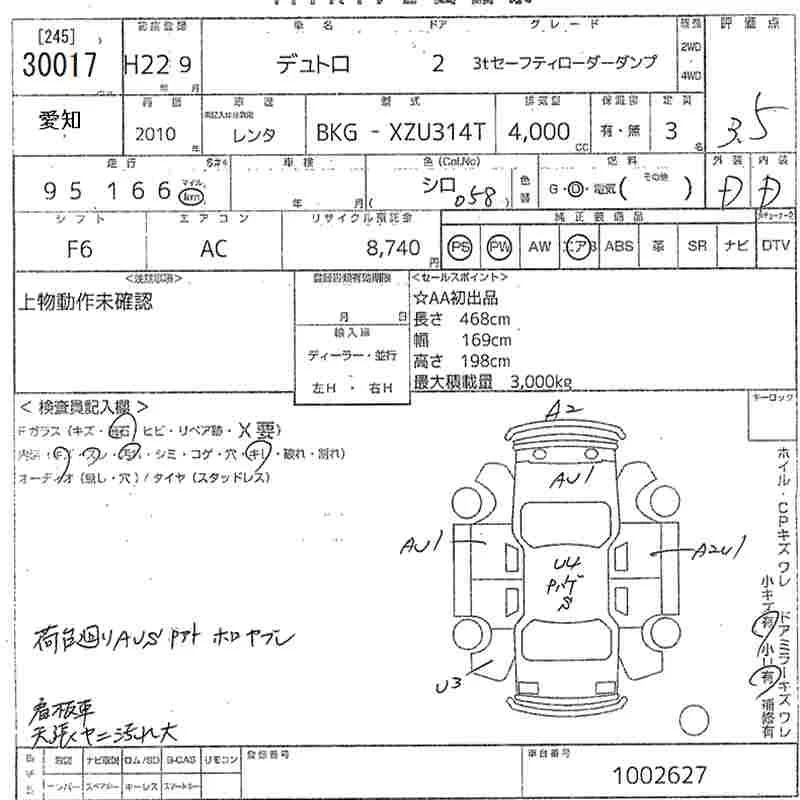 [245] 初度登録 車 名 ドア グ レ ー ド 評 価 点
30017 H22 9 デュトロ 2 3tセーフティローダーダンプ 2WD・4WD
年 月
愛知 車 歴 型 式 排 気 量 定 員 3.5
2010 年 レンタ BKG - XZU314T 4,000 CC 有・無 3 名
走 行 車 検 色 (Col.No) 燃 料 外 装 内 装
95 166 マイル km 年 月 ( シロ 058 ) 色替 G・D・電気( その他 ) D D
シ フ ト エ ア コ ン リサイクル預託金 純 正 装 備 品
F6 AC 8,740 円 PS PW AW エアB ABS 革 SR ナビ DTV
上物動作未確認
月 日
輸 入 車
ディーラー・並行
左H ・ 右H
<セールスポイント>
☆AA初出品
長さ 468cm
幅 169cm
高さ 198cm
最大積載量 3,000kg
キーロック
< 検査員記入欄 >
Fガラス (キズ・飛石・ヒビ・リペア跡・X要)
内装 (キズ・スレ・汚れ・シミ・コゲ・穴・キレ・破れ・割れ)
オーディオ (無し・穴) / タイヤ (スタッドレス)
A2
AU1
AU1
A2U1
U4
S
U3
ホイル・CPキズワレ ドアミラーキズワレ
小キズ有 小U有 補修有
荷台廻りAUS ホロヤブレ
看板車
天張ヤニ汚れ大
取説 ナビ取説 ロム/SD B-CAS リモコン 登録番号 車台番号
キーレス 1002627